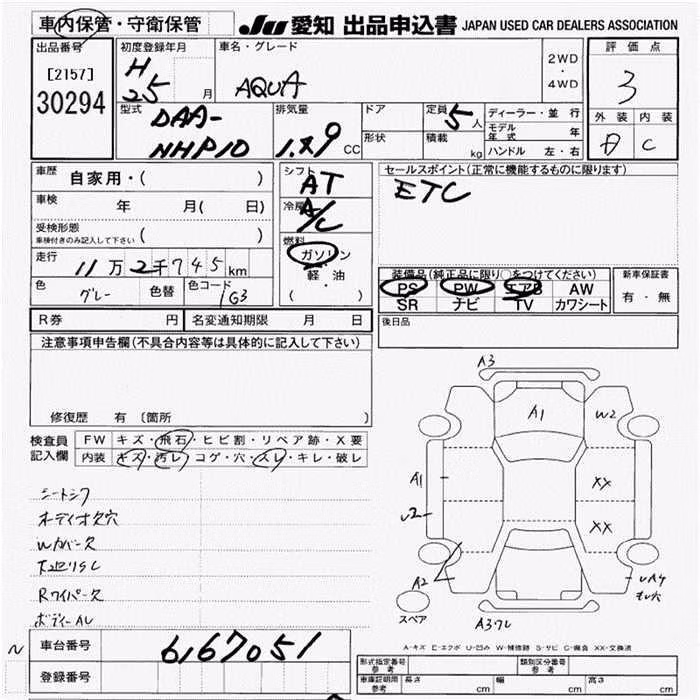 車内保管・守衛保管 JU 愛知 出品申込書 JAPAN USED CAR DEALERS ASSOCIATION
出品番号 初度登録年月 車名・グレード 2WD・4WD 評価点
[2157] H 25 月 AQUA 3
30294
型式 DAA-NHP10 排気量 1.8 9 CC ドア 定員 5人 ディーラー・並行 外装 内装
形状 積載 kg モデル年式 年 C
ハンドル 左・右
車歴 自家用・( ) シフト AT セールスポイント(正常に機能するものに限ります)
車検 年 月( 日) 冷房 A/C ETC
受検形態 車検付きのみ記入して下さい ( ) 燃料
走行 11万2千745km ガソリン・軽油 ( ) 装備品(純正品に限り○をつけてください) 新車保証書
色 グレー 色替 色コード 1G3 PS PW エアB AW 有・無
SR ナビ TV カワシート
R券 円 名変通知期限 月 日 後日品
注意事項申告欄(不具合内容等は具体的に記入して下さい)
修復歴 有 〔箇所 〕
検査員記入欄 FW キズ・飛石・ヒビ割・リペア跡・X要
内装 キズ・汚レ・コゲ・穴・スレ・キレ・破レ
シートシワ
オーディオ欠穴
Wカバー欠
下廻りSL
Rワイパー欠
ボディーAL
A3
A1 W2
A1 XX
U2 XX
A2 UA4
スペア
A3
A-キズ E-エクボ U-凹み W-補修跡 S-サビ C-腐食 XX-交換済
N 車台番号 6167051
登録番号
形式指定番号 参考 類別区分番号 参考
車庫証明用 参考 長さ cm 幅 cm 高さ cm